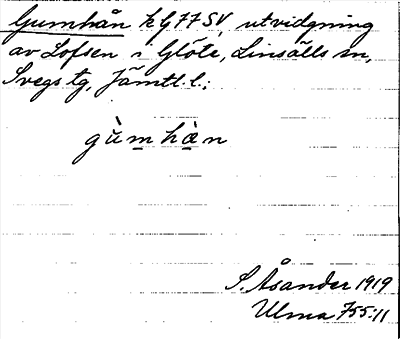 Gumhån k G77SV, utvidgning
av Lofsen i Glöte, Linsälls sn,
Svegs tg, Jämtl. l.;
gùmhàn
S. Åsander 1919
Ulma 755:11